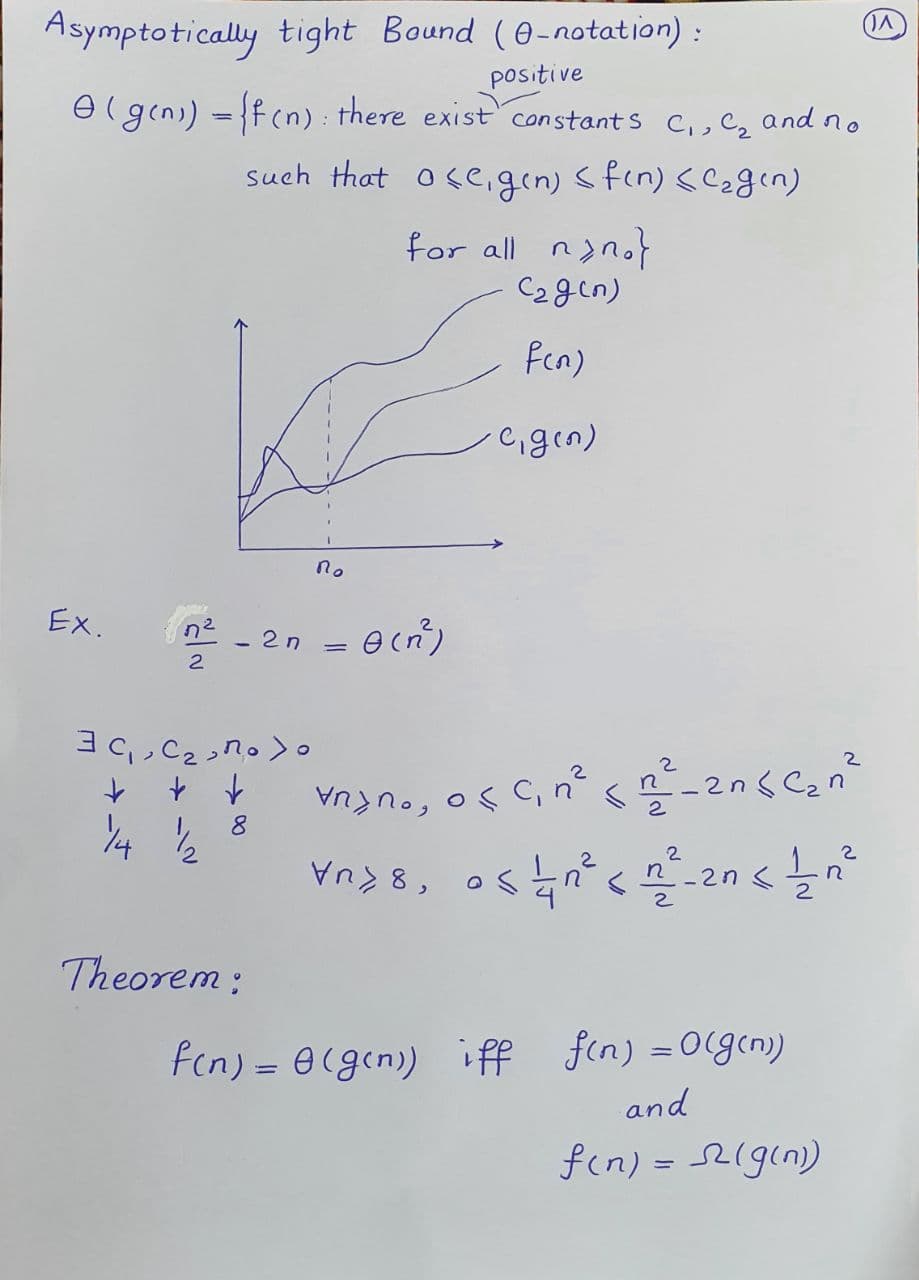 Asymptotically tight Bound (θ-notation) :
۱۸
positive
θ(g(n)) = {f(n) : there exist constants c₁, c₂ and n₀
such that 0 ⩽ c₁g(n) ⩽ f(n) ⩽ c₂g(n)
for all n ⩾ n₀}
c₂g(n)
f(n)
c₁g(n)
n₀
Ex. n²/2 - 2n = θ(n²)
∃ c₁, c₂, n₀ > 0
↓ ↓ ↓
1/4 1/2 8
∀n ⩾ n₀, 0 ⩽ c₁n² ⩽ n²/2 - 2n ⩽ c₂n²
∀n ⩾ 8, 0 ⩽ 1/4 n² ⩽ n²/2 - 2n ⩽ 1/2 n²
Theorem :
f(n) = θ(g(n)) iff f(n) = O(g(n))
and
f(n) = Ω(g(n))